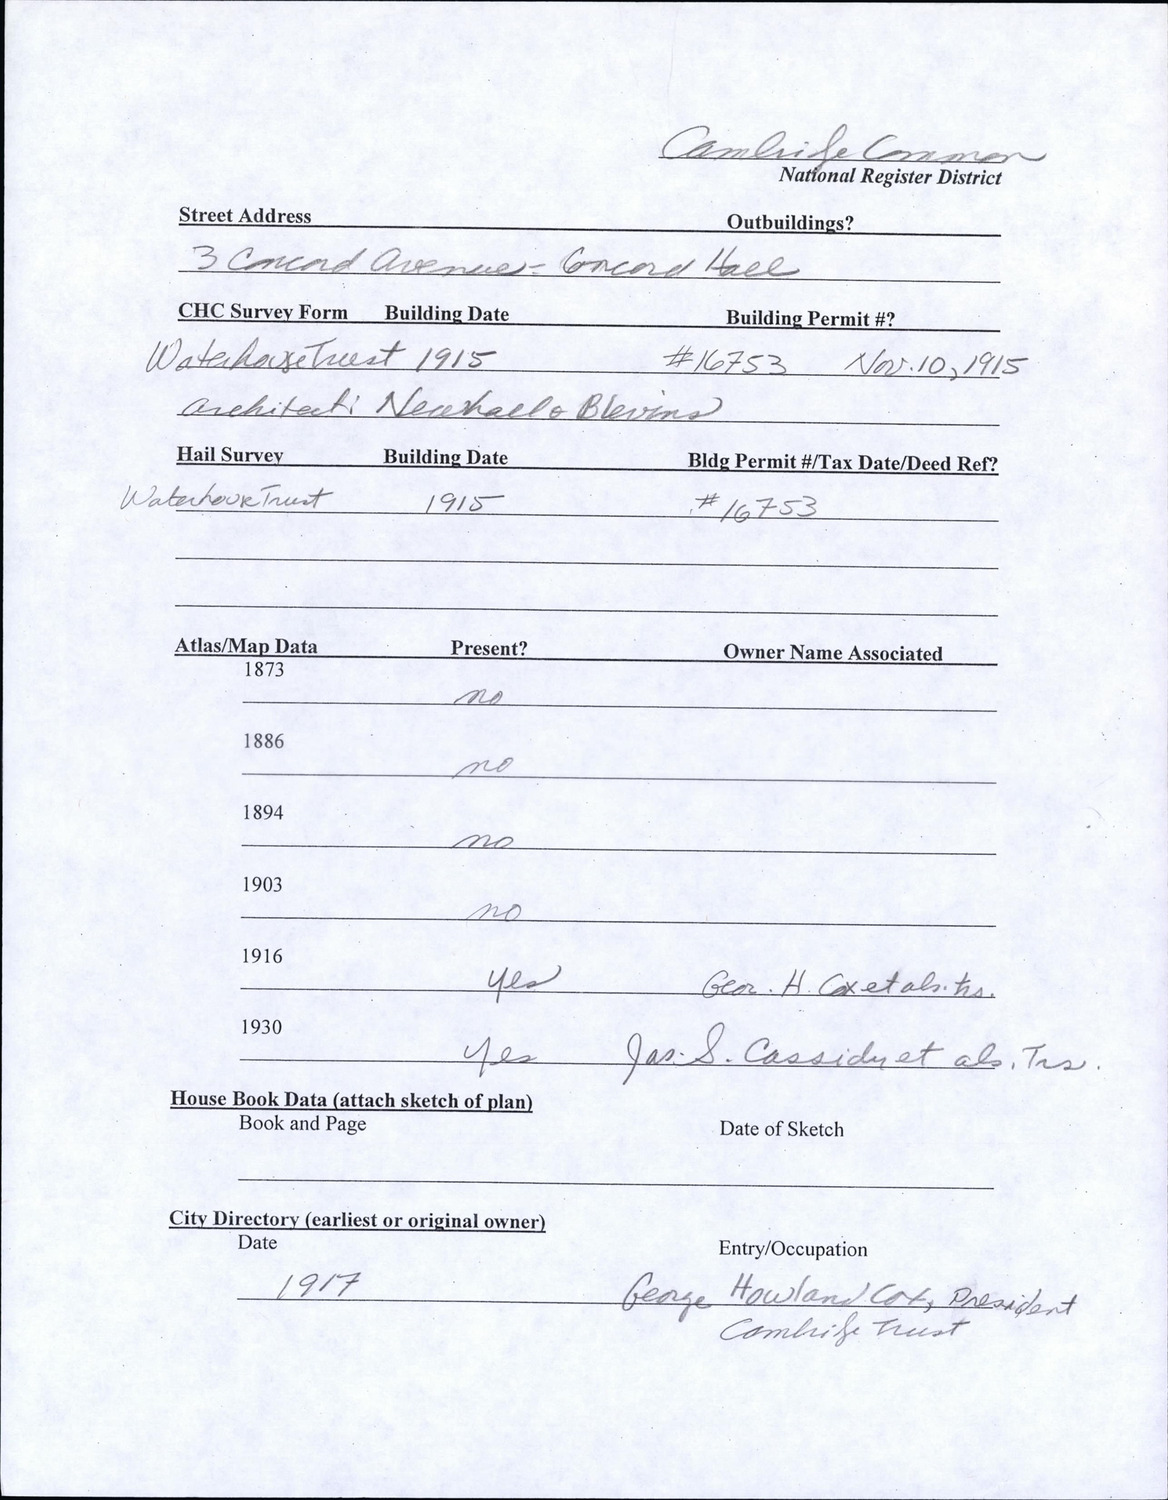 Cambridge Common
National Register District
Street Address Outbuildings?
3 Concord Avenue - Concord Hall
CHC Survey Form Building Date Building Permit #?
Waterhouse Trust 1915 #16753 Nov. 10, 1915
architect: Newhall & Blevins
Hail Survey Building Date Bldg Permit #/Tax Date/Deed Ref?
Waterhouse Trust 1915 #16753
Atlas/Map Data Present? Owner Name Associated
1873
no
1886
no
1894
no
1903
no
1916
yes Geo. H. Cox et als. trs.
1930
yes Jas. S. Cassidy et als. Trs.
House Book Data (attach sketch of plan)
Book and Page Date of Sketch
City Directory (earliest or original owner)
Date Entry/Occupation
1917 George Howland Cox, President
Cambridge Trust